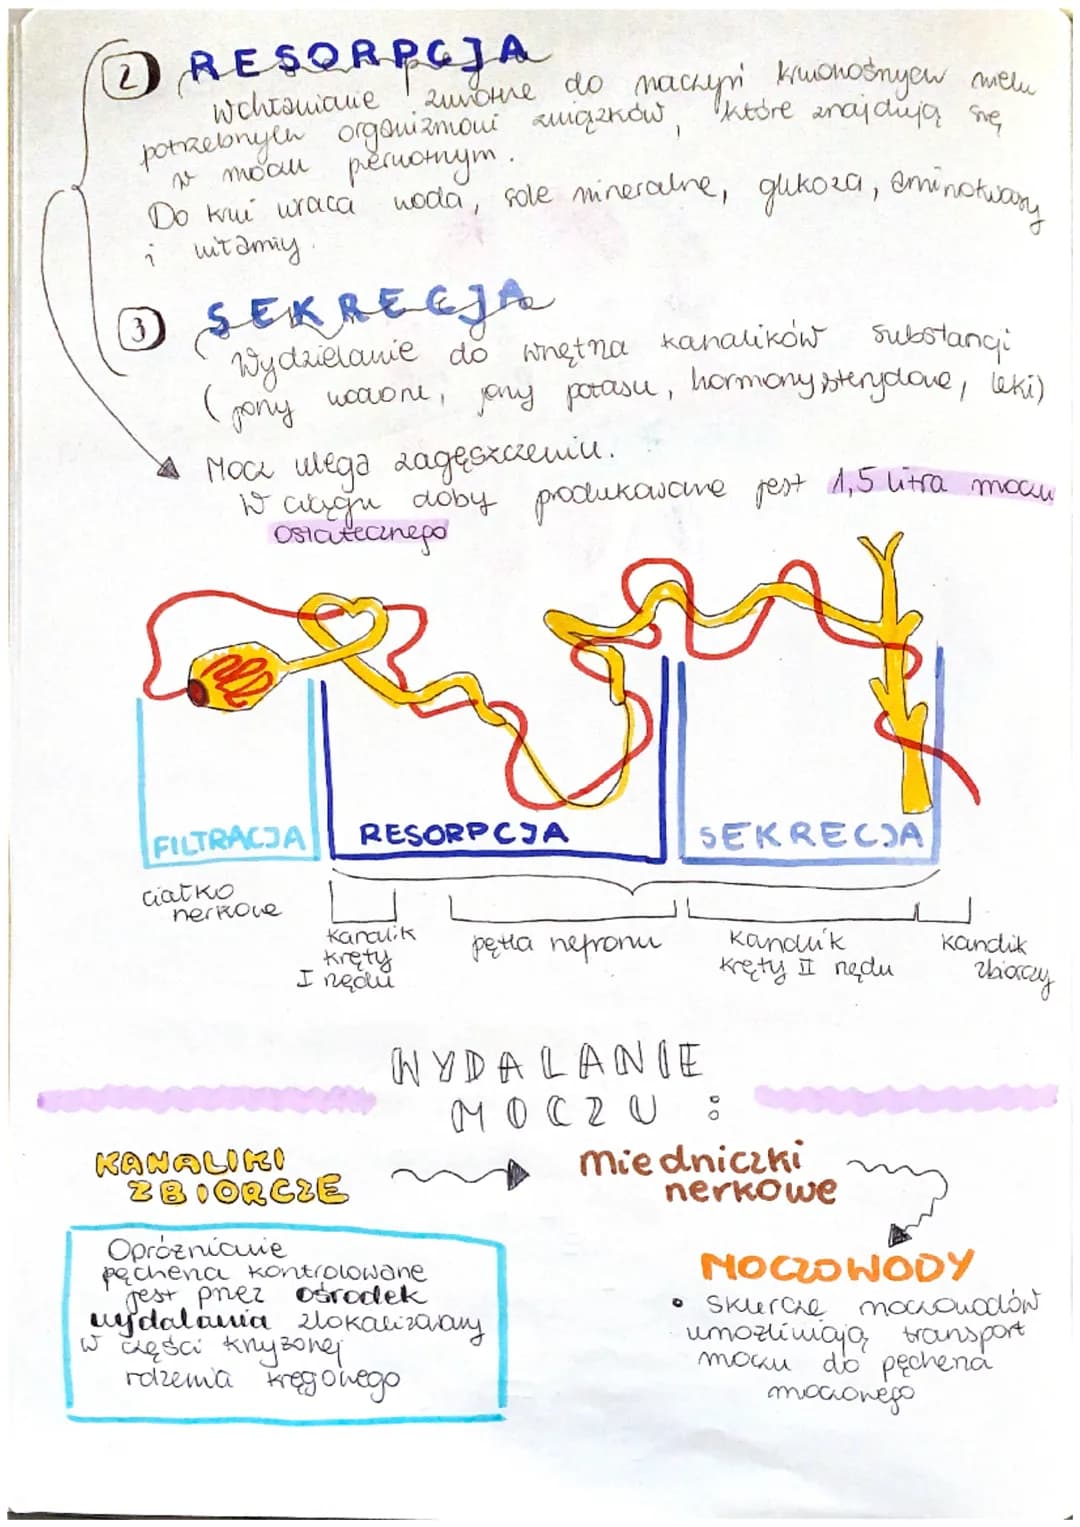 2 RESORPCJA
Wchłanianie zwrotne do naczyń krwionośnych wielu
potrzebnych organizmowi związków, które znajdują się
w moczu pierwotnym.
Do krwi wraca woda, sole mineralne, glukoza, aminokwasy
i witaminy.
3 SEKRECJA
Wydzielanie do wnętrza kanalików substancji
(jony wodoru, jony potasu, hormony sterydowe, leki)
Mocz ulega zagęszczeniu.
W ciągu doby produkowane jest 1,5 litra moczu
ostatecznego
FILTRACJA RESORPCJA SEKRECJA
ciałko
nerkowe
kanalik
kręty
I rzędu
pętla nefronu
kanalik
kręty II rzędu
kanalik
zbiorczy
WYDALANIE
MOCZU :
KANALIKI
ZBIORCZE
miedniczki
nerkowe
MOCZOWODY
• skurcze moczowodów
umożliwiają transport
moczu do pęcherza
moczowego
Opróżnianie
pęcherza kontrolowane
jest przez ośrodek
wydalania zlokalizowany
w części krzyżowej
rdzenia kręgowego